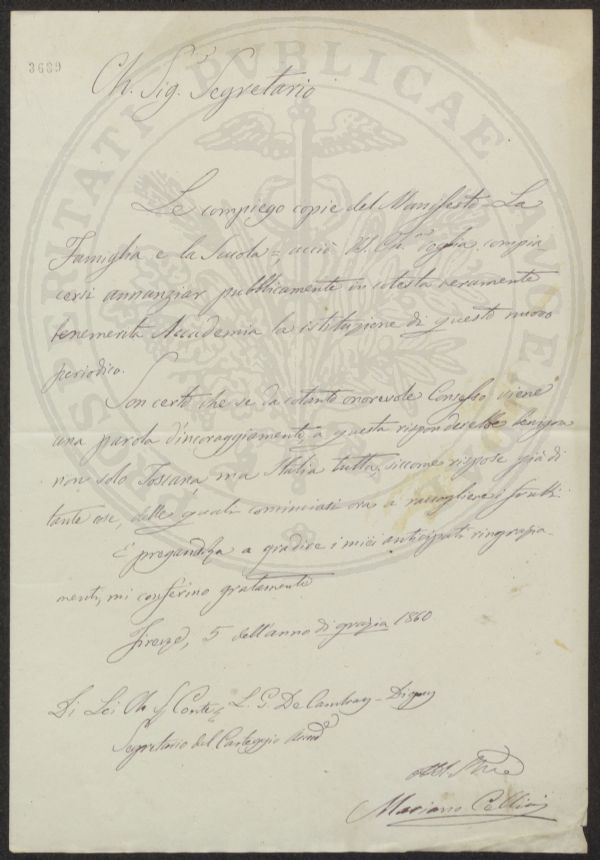 3689
Ch. Sig. Segretario
Le compiego copie del Manifesto = La
Famiglia e la Scuola = acciò V. S. Ch. voglia compia-
cersi annunziar pubblicamente in cotesta veramente
benemerita Accademia la istituzione di questo nuovo
periodico.
Son certo che se da cotanto onorevole Consesso viene
una parola d'incoraggiamento, a questa risponderebbe benigna
non solo Toscana, ma Italia tutta, siccome rispose già di
tante cose, delle quali cominciasi ora a raccogliere i frutti.
E pregandola a gradire i miei anticipati ringrazia-
menti, mi confermo gratamente
Firenze, 5 dell'anno di grazia 1860
Di Lei Ch. Sig. Conte L. G. De Cambray-Digny
Segretario del Carteggio Accad.
Mariano Cellini
PROSPERITATI PUBLICAE AUGENDAE